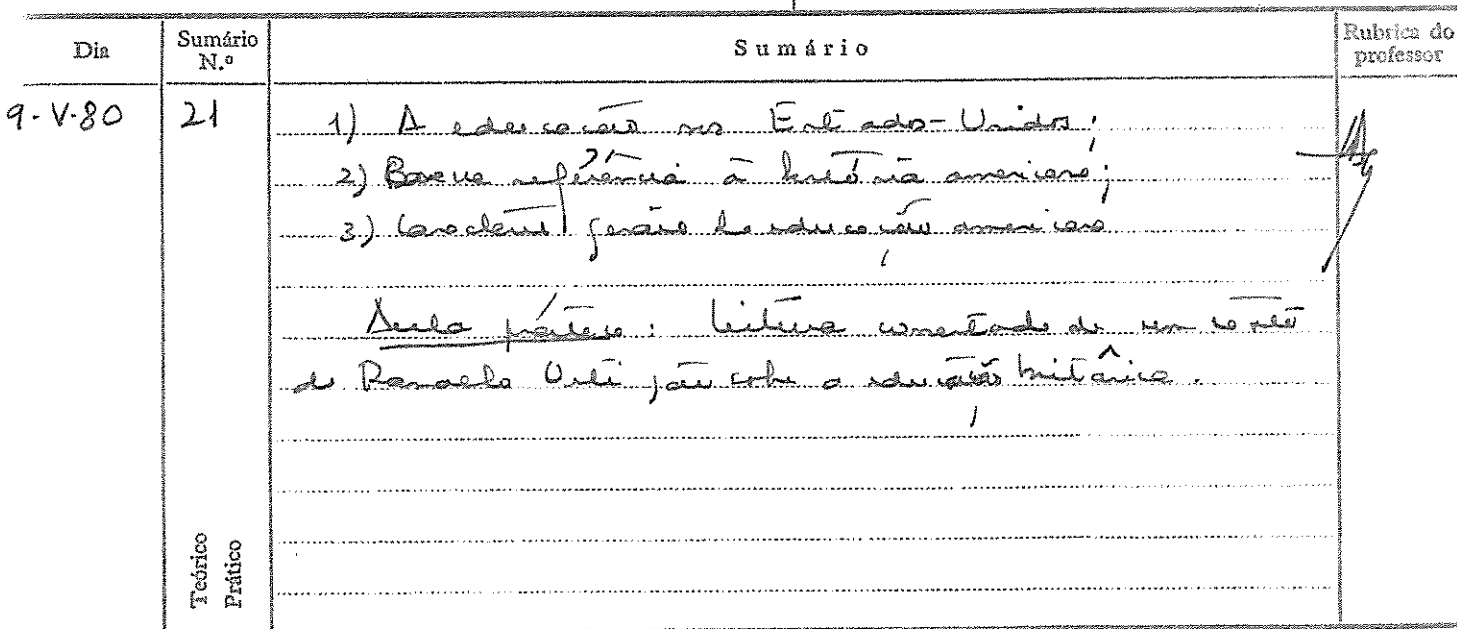 Dia
Sumário N.º
Sumário
Rubrica do professor
9-V-80
21
1) A educação nos Estados-Unidos;
2) Breve referência à história americana;
3) Caracteres gerais da educação americana
Aula prática: leitura comentada de um texto
de Ramalho Ortigão sobre a educação britânica.
Teórico
Prático